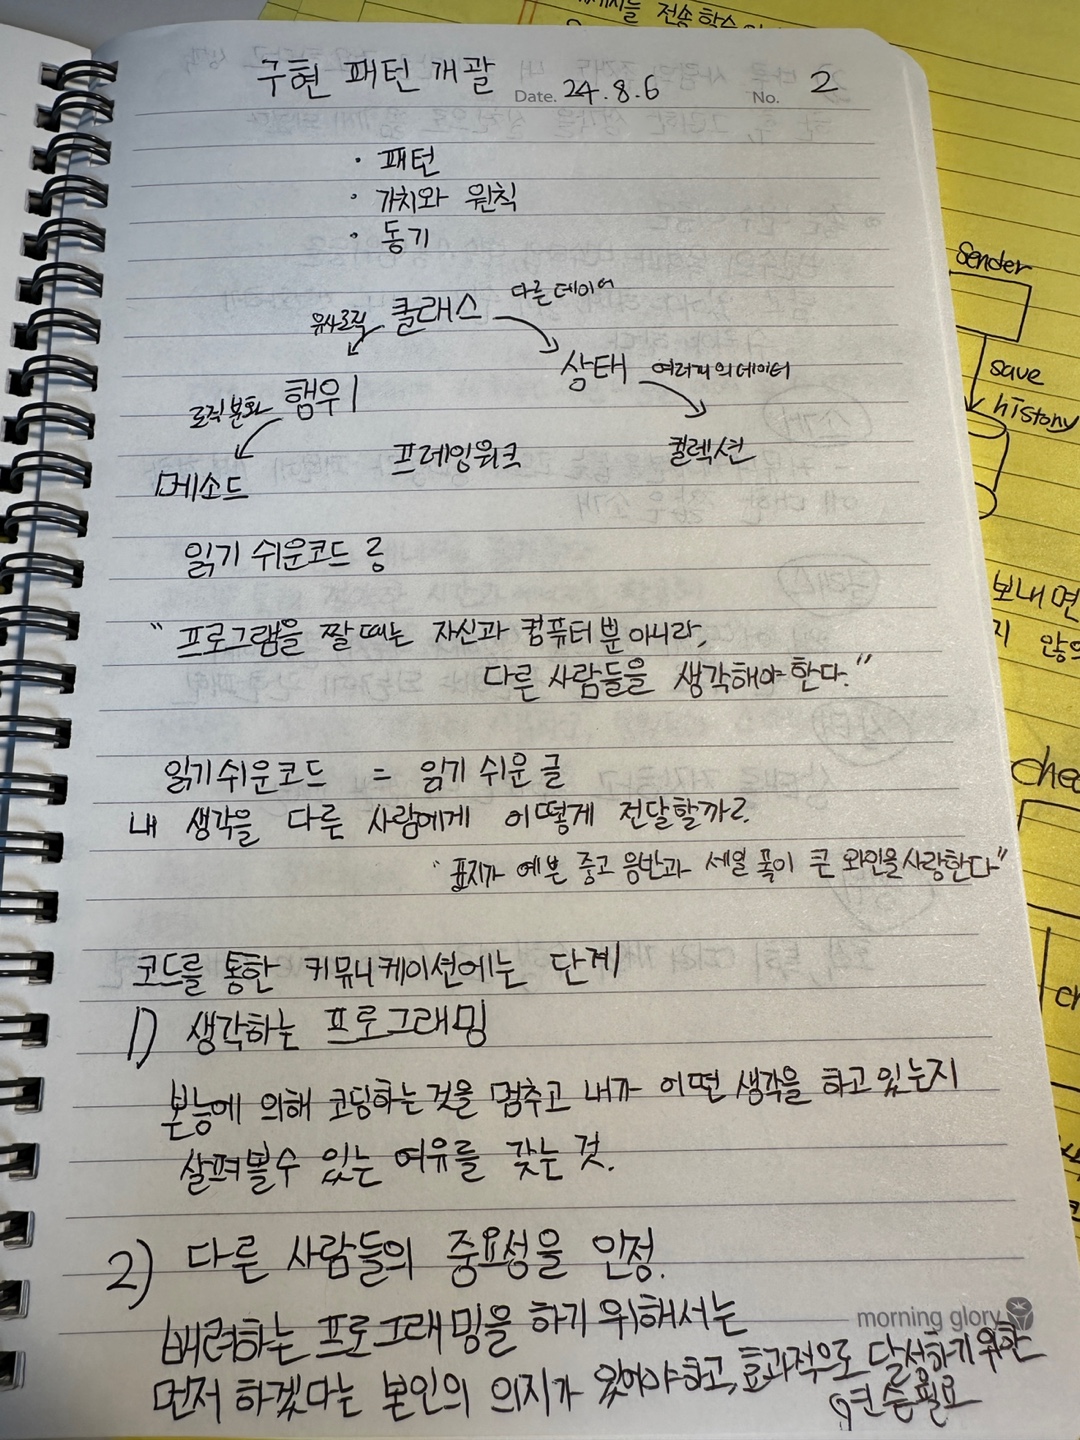 구현 패턴 개괄 Date. 24.8.6 No. 2
· 패턴
· 가치와 원칙
· 동기
유사로직 클래스 다른 데이터
로직분화 행위 상태 여러개의데이터
메소드 프레임워크 컬렉션
읽기 쉬운코드
" 프로그램을 짤 때는 자신과 컴퓨터뿐 아니라,
다른 사람들을 생각해야한다."
읽기쉬운코드 = 읽기 쉬운 글
내 생각을 다른 사람에게 어떻게 전달할까?
"표지가 예쁜 중고 음반과 세일 폭이 큰 와인을사랑한다"
코드를 통한 커뮤니케이션에는 단계
1) 생각하는 프로그래밍
본능에 의해 코딩하는것을 멈추고 내가 어떤 생각을 하고있는지
살펴볼수 있는 여유를 갖는 것.
2) 다른 사람들의 중요성을 인정.
배려하는 프로그래밍을 하기 위해서는
먼저 하겠다는 본인의 의지가 있어야하고, 효과적으로 달성하기위한
연습필요
morning glory
전송
Sender
save
history
보내면
지 않으
chec
ch